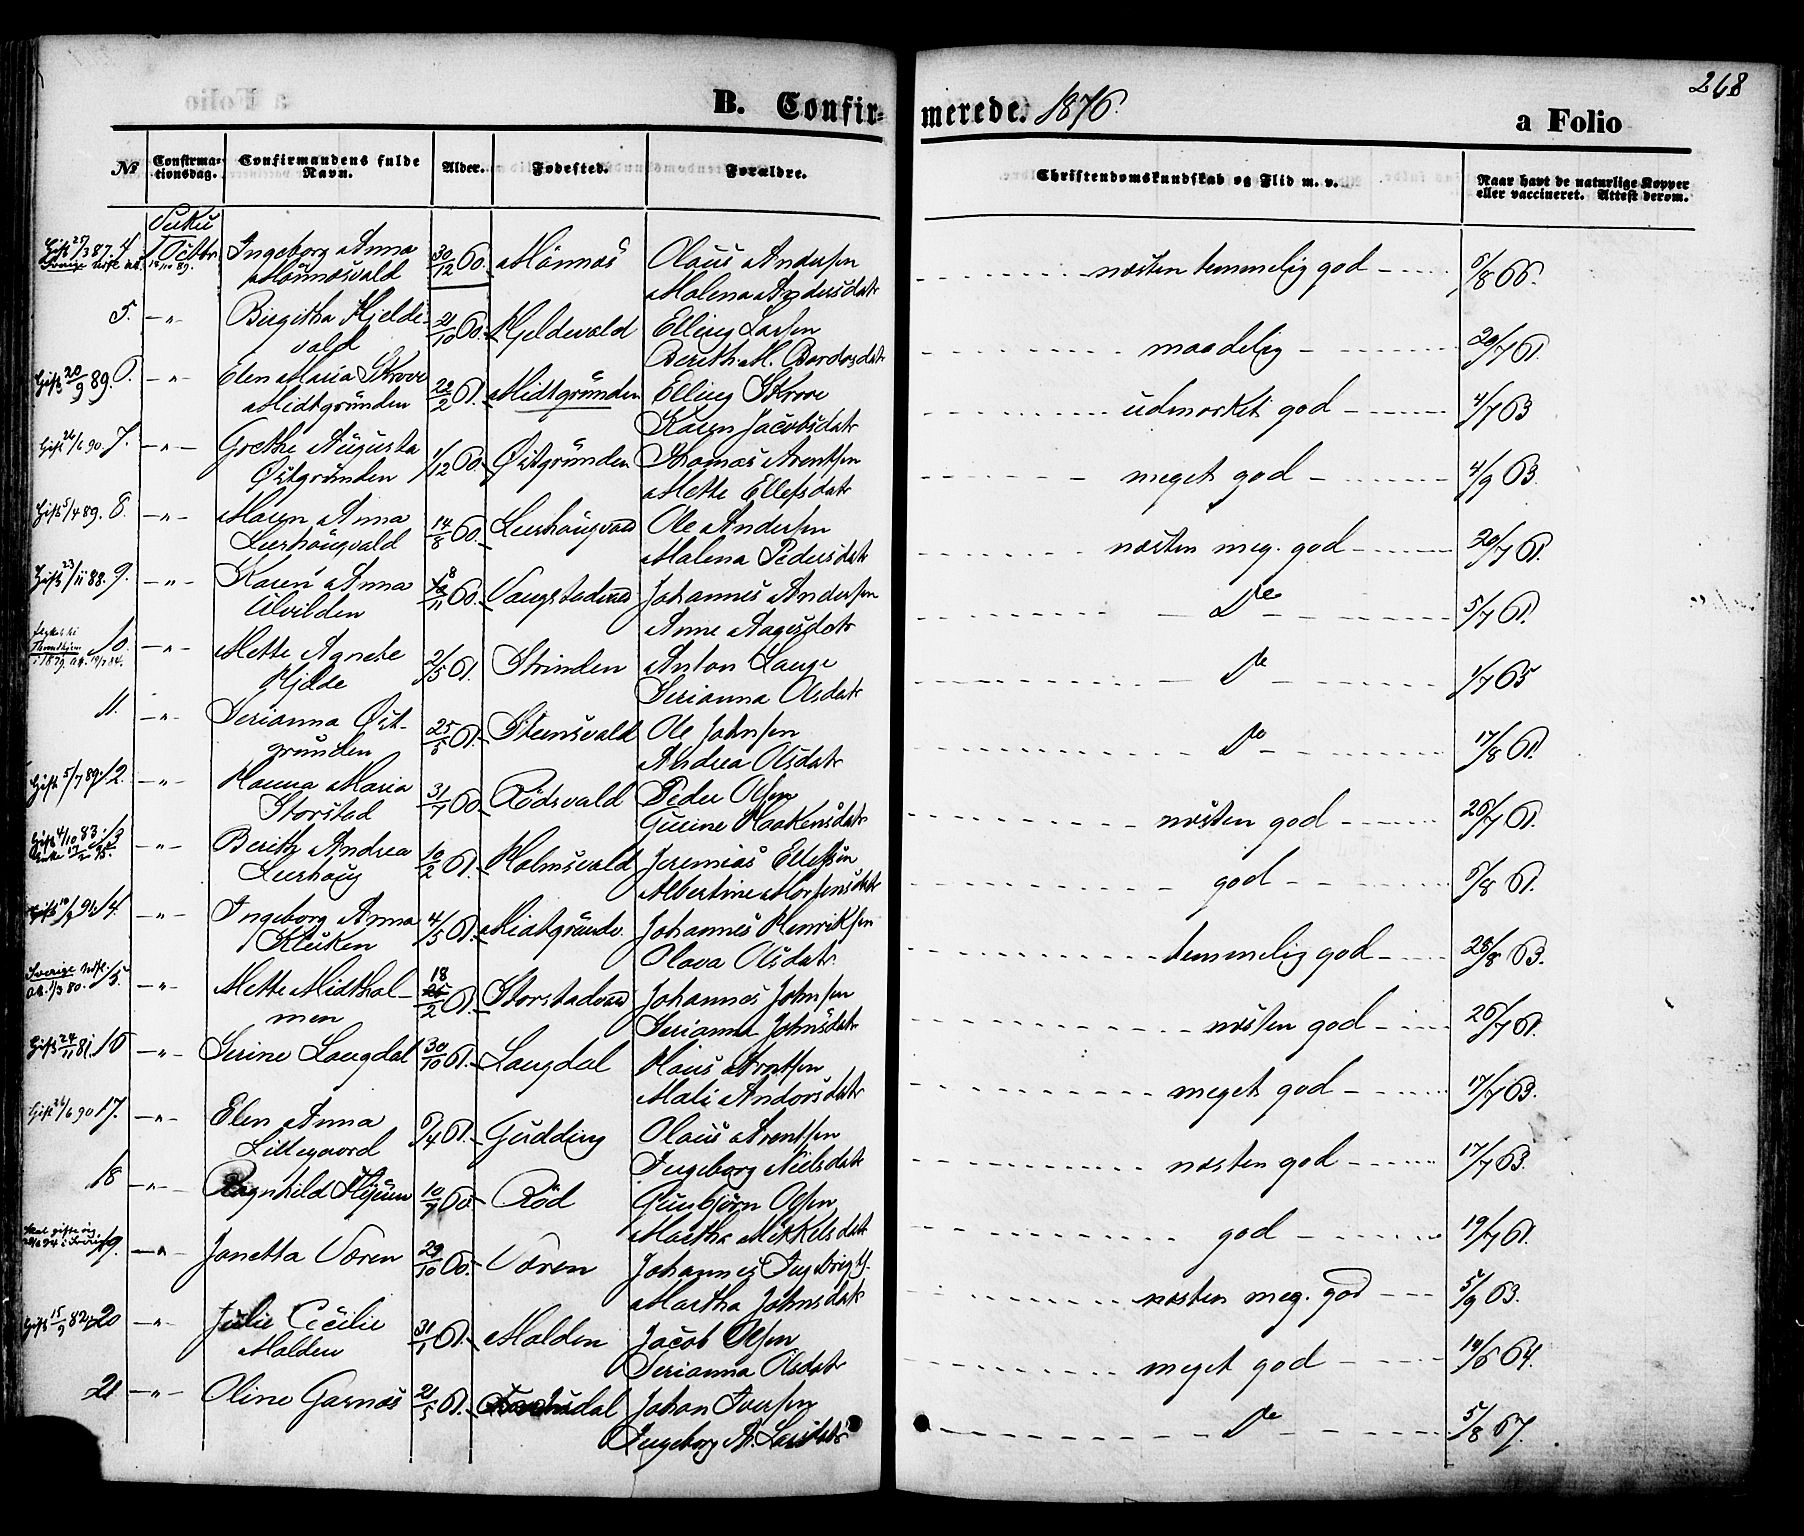 268
B. Confirmerede. 1876.
a Folio
№
Confirmationsdag.
Confirmandens fulde Navn.
Alder.
Fødested.
Forældre.
Christendomskundskab og Flid m. v.
Naar havt de naturlige Kopper eller vaccineret. Attest derom.
Vuku
Gift 25/3 87. 4 1 Octbr. Ingeborg Anna 30/12 60. Mönnæs Olaus Andersen næsten temmelig god 5/8 66.
Mönnæsvald Malena Andersdatr
5. -"- Birgitha Hjelde- 21/10 60. Hjeldevald Elling Larsen maadelig 20/7 61.
vald Berith M. Bardosdatr
Gift 20/9 89. 6. -"- Elen Maria Skrove 22/2 61. Midtgrunden Elling Skrove udmærket god 4/7 63
Midtgrunden Karen Jacobsdatr
Gift 26/6 90 7. -"- Grethe Augusta 1/12 60. Østgrunden Thomas Arentsen meget god 4/9 63.
Østgrunden Mette Ellefsdatr
Gift 5/4 89. 8. -"- Maren Anna 14/8 60. Leerhaugvald Ole Andersen næsten meg. god 20/7 61.
Leerhaugvald Malena Pedersdatr
Gift 23/11 88. 9. -"- Karen Anna 8/11 60. Vangstadvald Johannes Andersen Do 5/7 61.
Ulvilden Anne Aagesdatr
10. -"- Mette Agnete 2/5 61. Strinden Anton Lange Do 1/7 65
Hjelde Serianna Olsdatr
11. -"- Serianna Øst- 25/5 61. Steensvald Ole Johnsen Do 17/8 61.
grunden Andrea Olsdatr
Gift 5/7 89. 12. -"- Hanna Maria 31/7 60. Rödsvald Peder Olsen næsten god 26/7 61.
Storstad Gurine Haakensdatr
Gift 4/10 83. 13 -"- Berith Andrea 10/2 61. Holmsvald Jeremias Ellefsen god 5/8 61.
Leerhaug Albertine Mortensdatr
14. -"- Ingeborg Anna 4/5 61. Midtgrunde Johannes Henriksen temmelig god 28/8 63.
Kluken Olava Olsdatr
Sverige Udfl. Att. 1/3 80. 15. -"- Mette Midthol- 18/2 61. Storstadvald Johannes Johnsen næsten god 26/7 61.
men Serianna Johnsdatr
Gift 24/11 81. 16 -"- Serine Langdal 30/10 61. Langdal Klaus Arntsen meget god 17/7 63.
Mali Andorsdatr
Gift 26/6 90 17. -"- Elen Anna 9/4 61. Gudding Olaus Arentsen næsten god 17/7 63.
Lillegaard Ingeborg Nielsdatr
18 -"- Ragnhild 10/7 60. Röd Gunbjörn Olsen god 19/7 61.
Martha Mikkelsdatr
19. -"- Janetta Væren 29/10 60. Væren Johannes næsten meg. god 5/9 63.
Martha Johnsdatr
Gift 15/9 82. 20 -"- Julie Cecilie 31/1 61. Molden Jacob Olsen meget god 14/6 64.
Molden Serianna Olsdatr
21 -"- Oline Garnæs 21/5 61. Johan Iversen Do 5/8 67.
Ingeborg A. Larsdatr